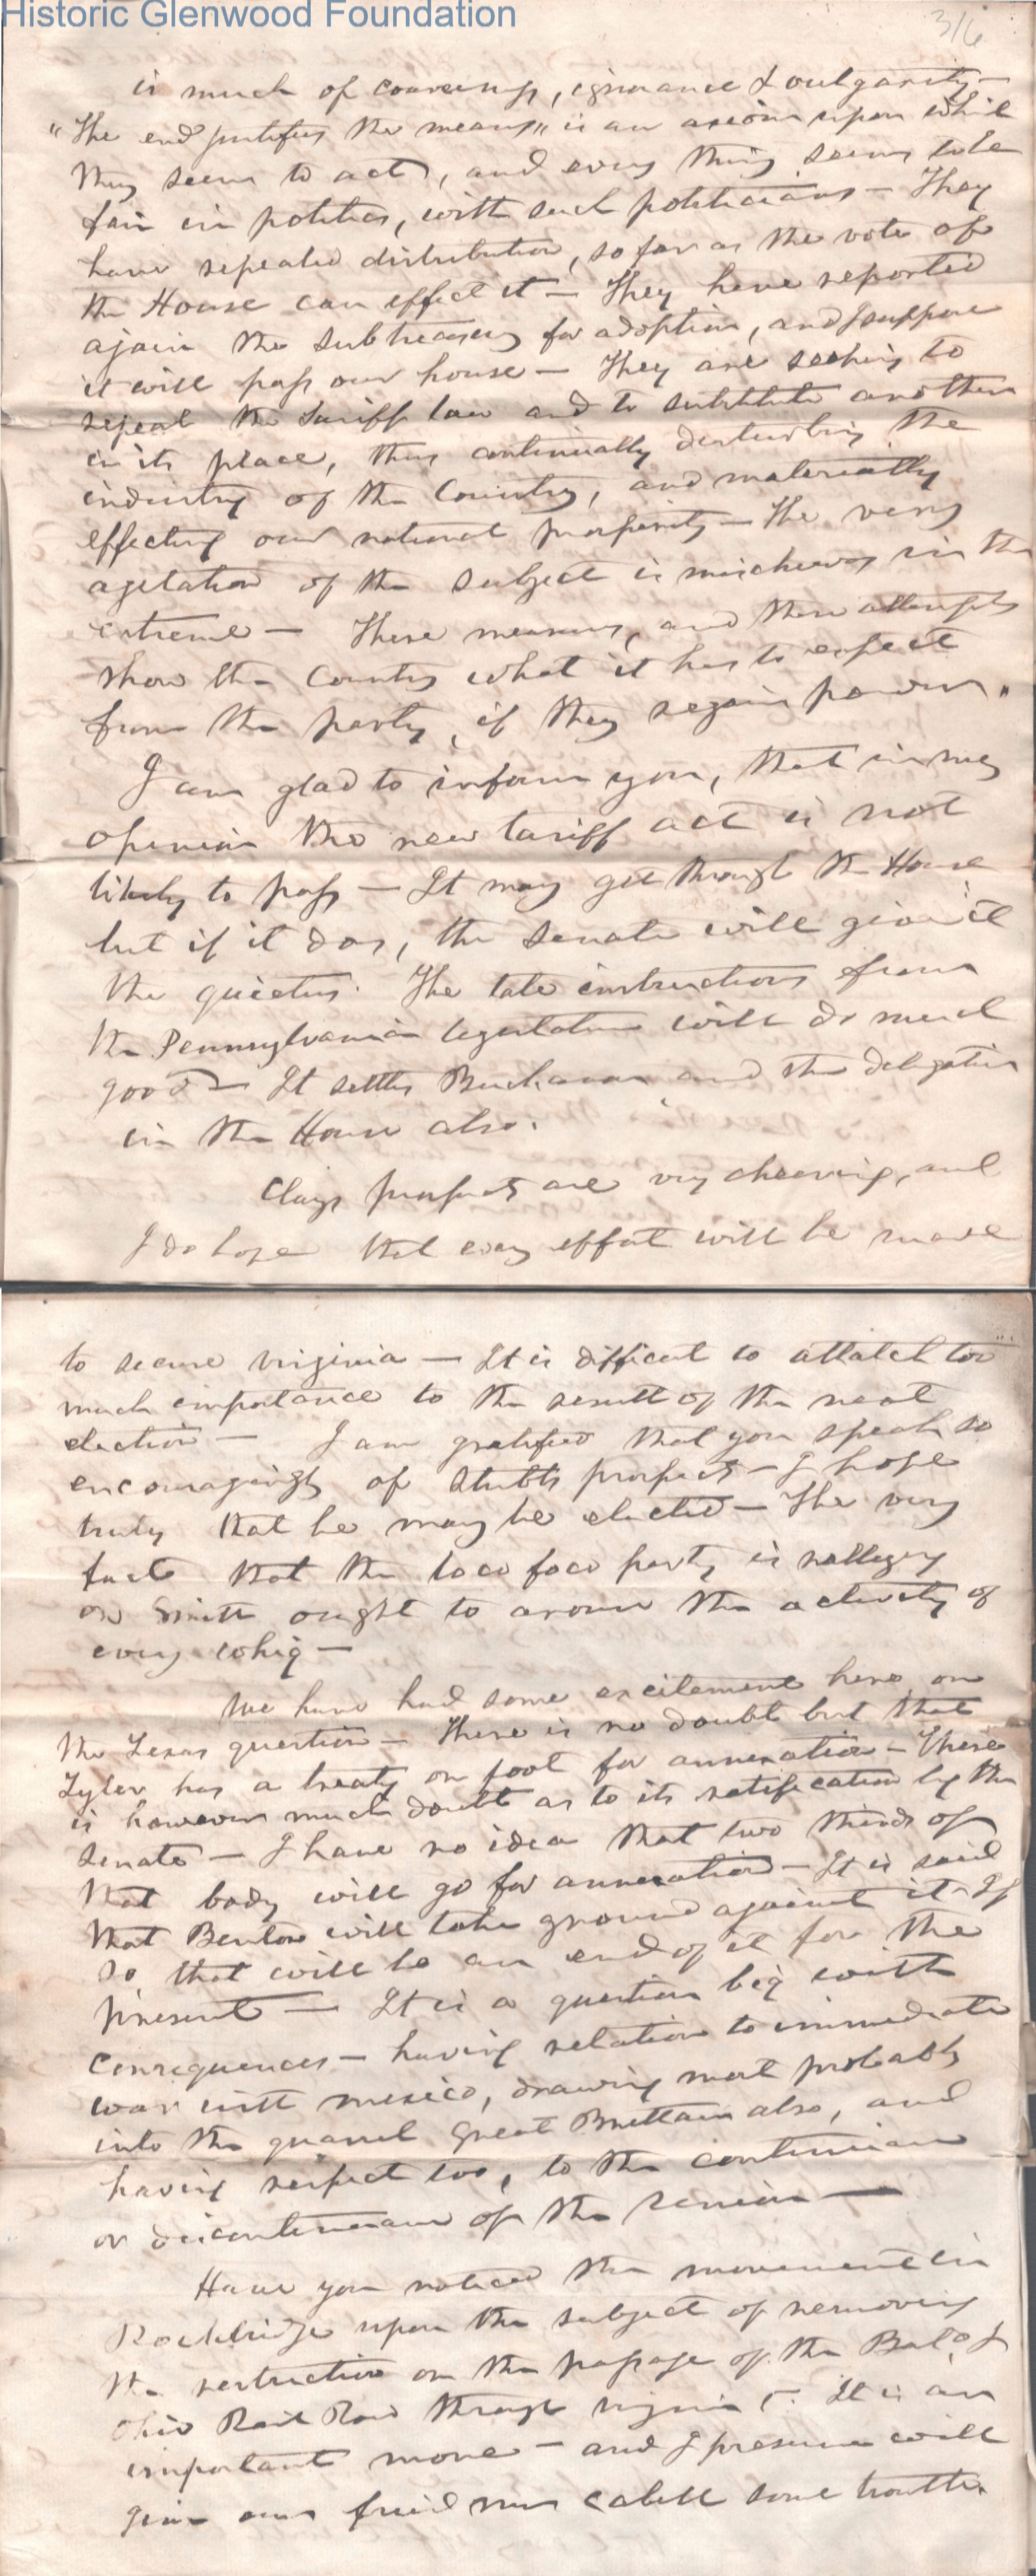 Historic Glenwood Foundation
316
is much of coarseness, ignorance & vulgarity —
"The end justifies the means" is an axiom upon which
they seem to act, and every thing seems to be
fair in politics, with such politicians — They
have repealed distribution, so far as the vote of
the House can effect it — They have reported
again the subtreasury for adoption, and I suppose
it will pass our house — They are seeking to
repeal the tariff law and to substitute another
in its place, thus continually disturbing the
industry of the Country, and materially
effecting our national prosperity — The very
agitation of the subject is mischievous in the
extreme — These measures, and these attempts
show the Country what it has to expect
from the party, if they regain power."
I am glad to inform you, that in my
opinion the new tariff act is not
likely to pass — It may get through the House
but if it does, the Senate will give it
the quietus. The late instructions from
the Pennsylvania legislature will do much
good — It settles Buchanan and the delegation
in the House also.
Clays prospects are very cheering, and
I do hope that every effort will be made
to secure Virginia — It is difficult to attatch too
much importance to the result of the next
election — I am gratified that you speak so
encouragingly of Stubbs prospects — I hope
truly that he may be elected — The very
fact that the loco foco party is rallying
on Smith ought to arouse the activity of
every whig —
We have had some excitement here on
the Texas question — There is no doubt but that
Tyler has a treaty on foot for annexation — There
is however much doubt as to its ratification by the
Senate — I have no idea that two thirds of
that body will go for annexation — It is said
that Benton will take ground against it — If
so that will be an end of it for the
present — It is a question big with
consequences — having relation to immediate
war with mexico, drawing most probably
into the quarrel Great Brittain also, and
having respect too, to the continuance
or discontinuance of the Union —
Have you noticed the movement in
Rockbridge upon the subject of removing
the restriction on the passage of the Balo &
Ohio Rail Road through virginia. It is an
important move — and I presume will
give our friend Cabell some trouble.